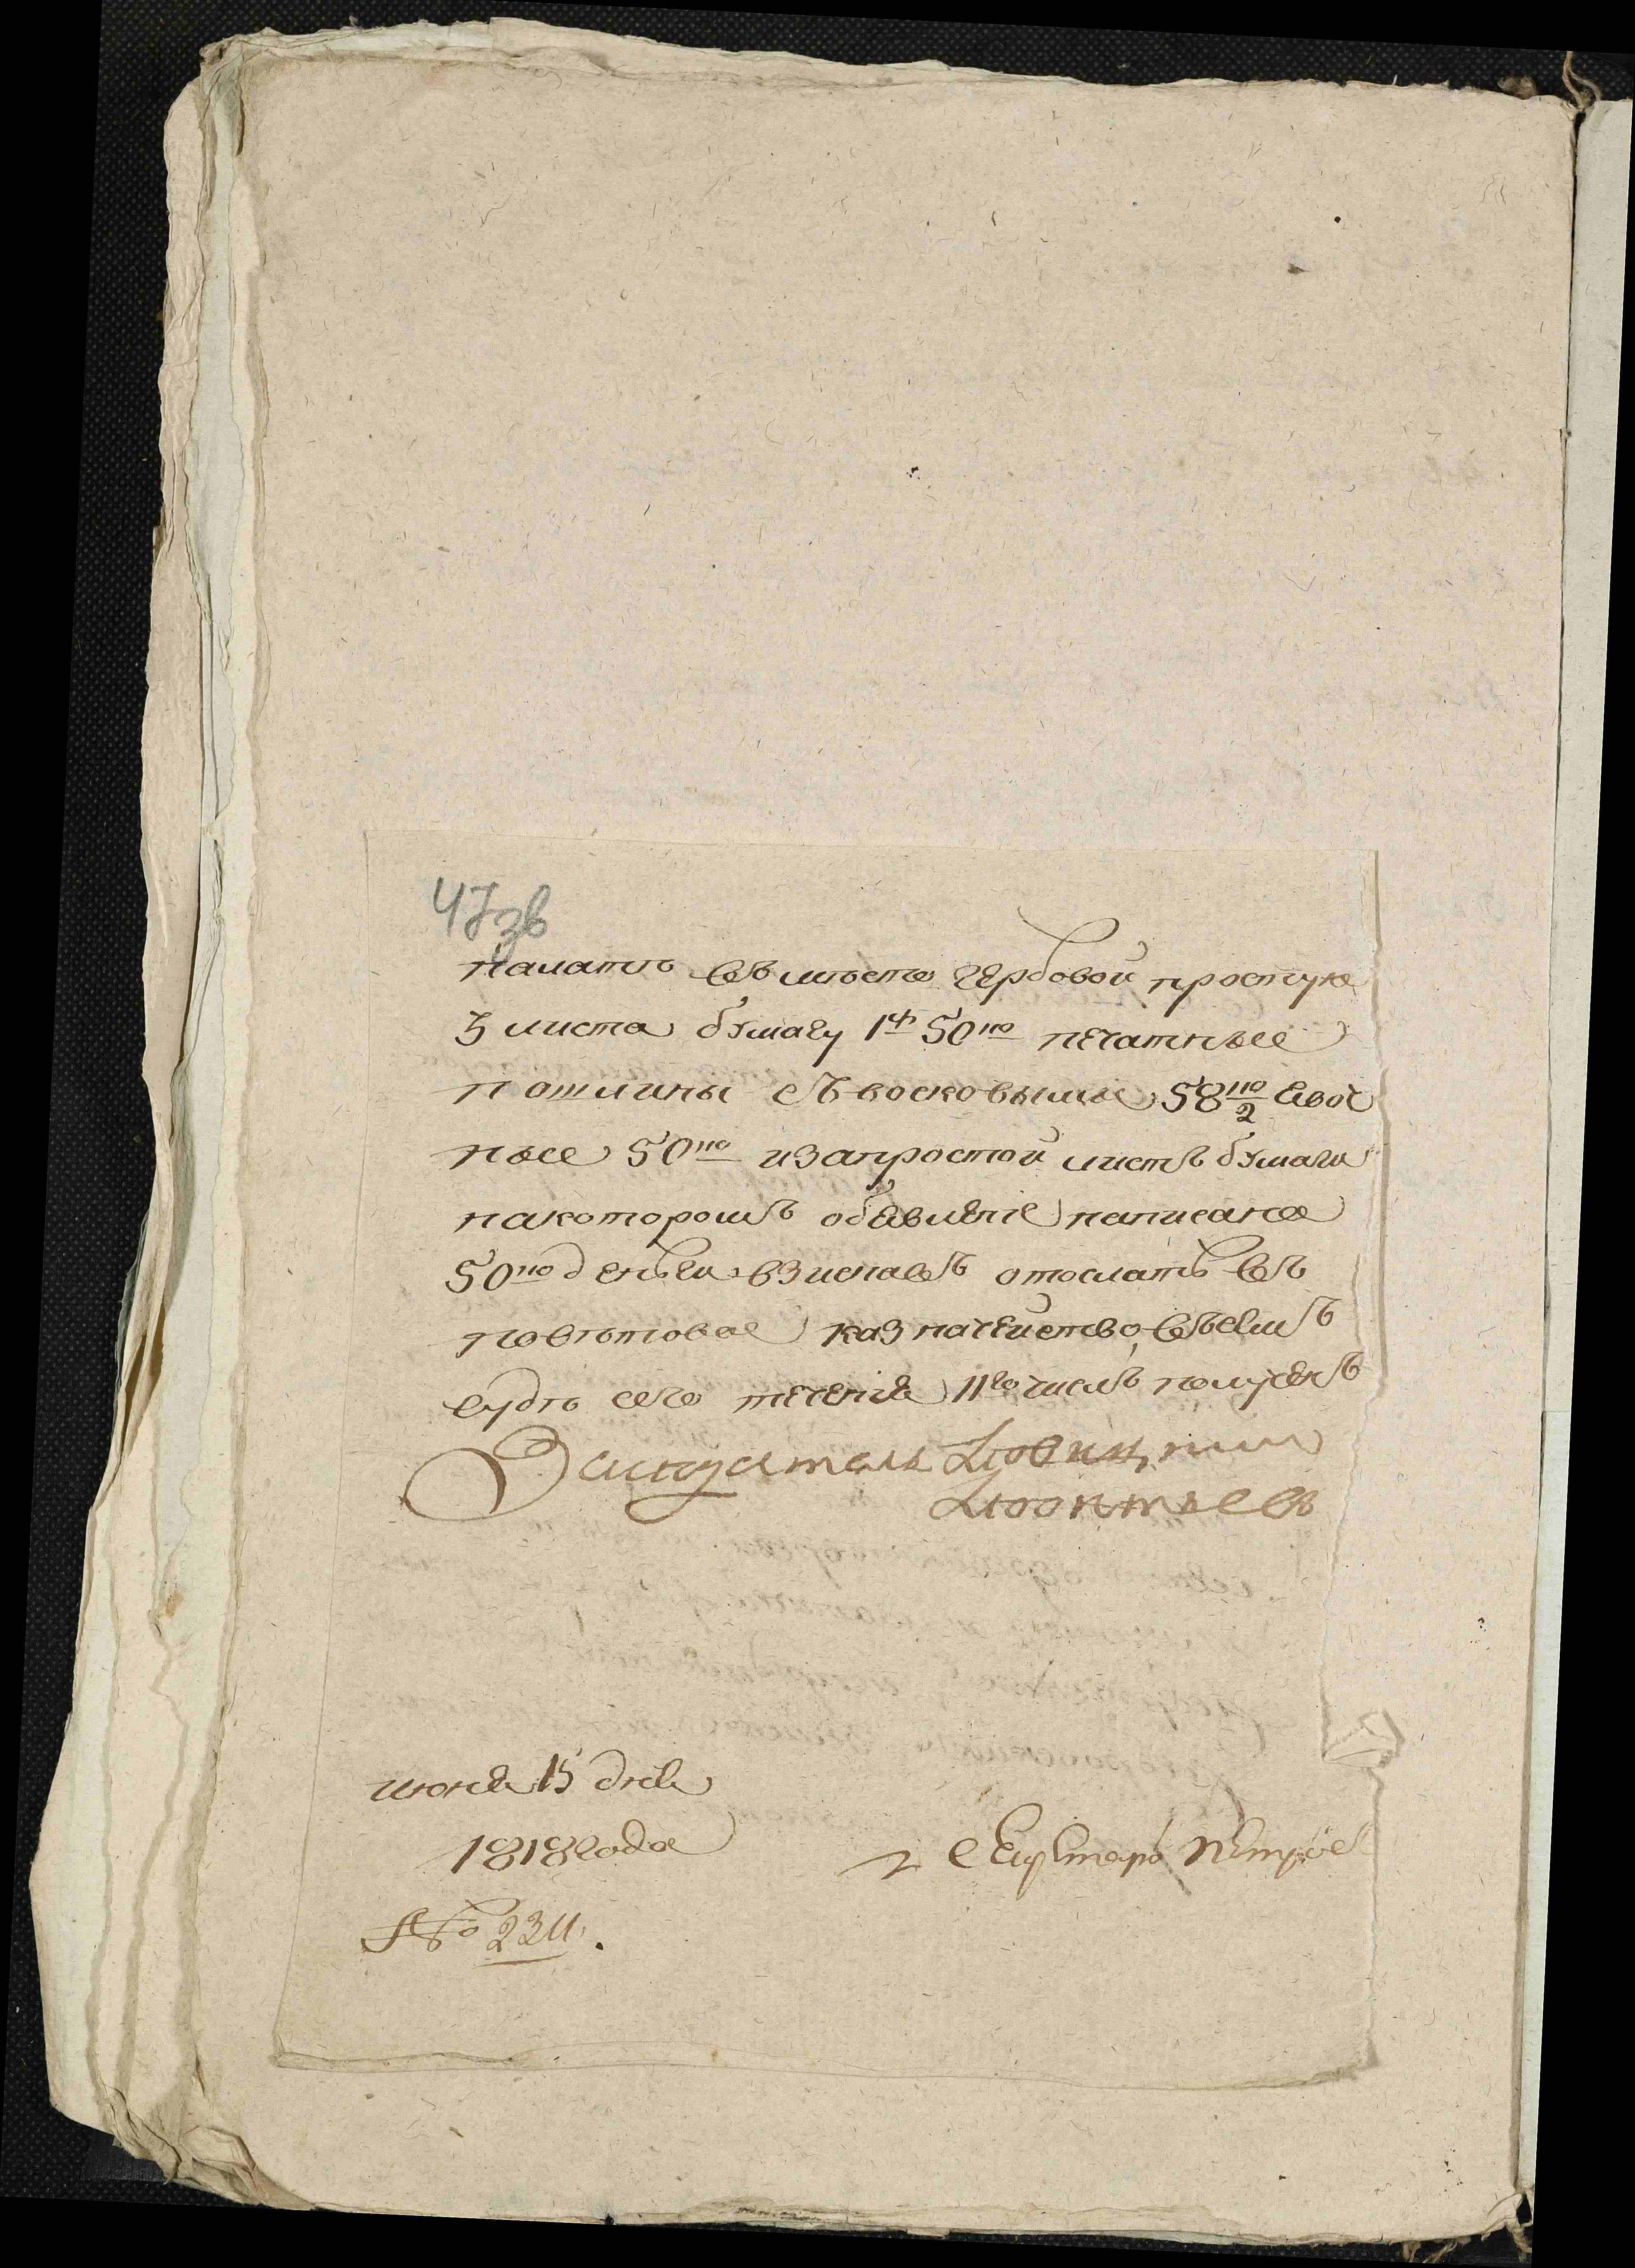 47 зв
палатѣ въ место гербовой простую
3 листа бумагу 1 ру 50 ко печатные
пошлины съ восковыми 58 ко/2 евоч
ные 50 ко и за простой листъ бумаги
на которомъ объявленіе написано
50 ко деньги взискавъ отослатъ въ
поветовое казначейство, въ семъ
судѣ сего теченія 11го числъ полученъ
Засѣдатель
июня 15 дня
1818 года
Секретарь Петров
№ 2311.